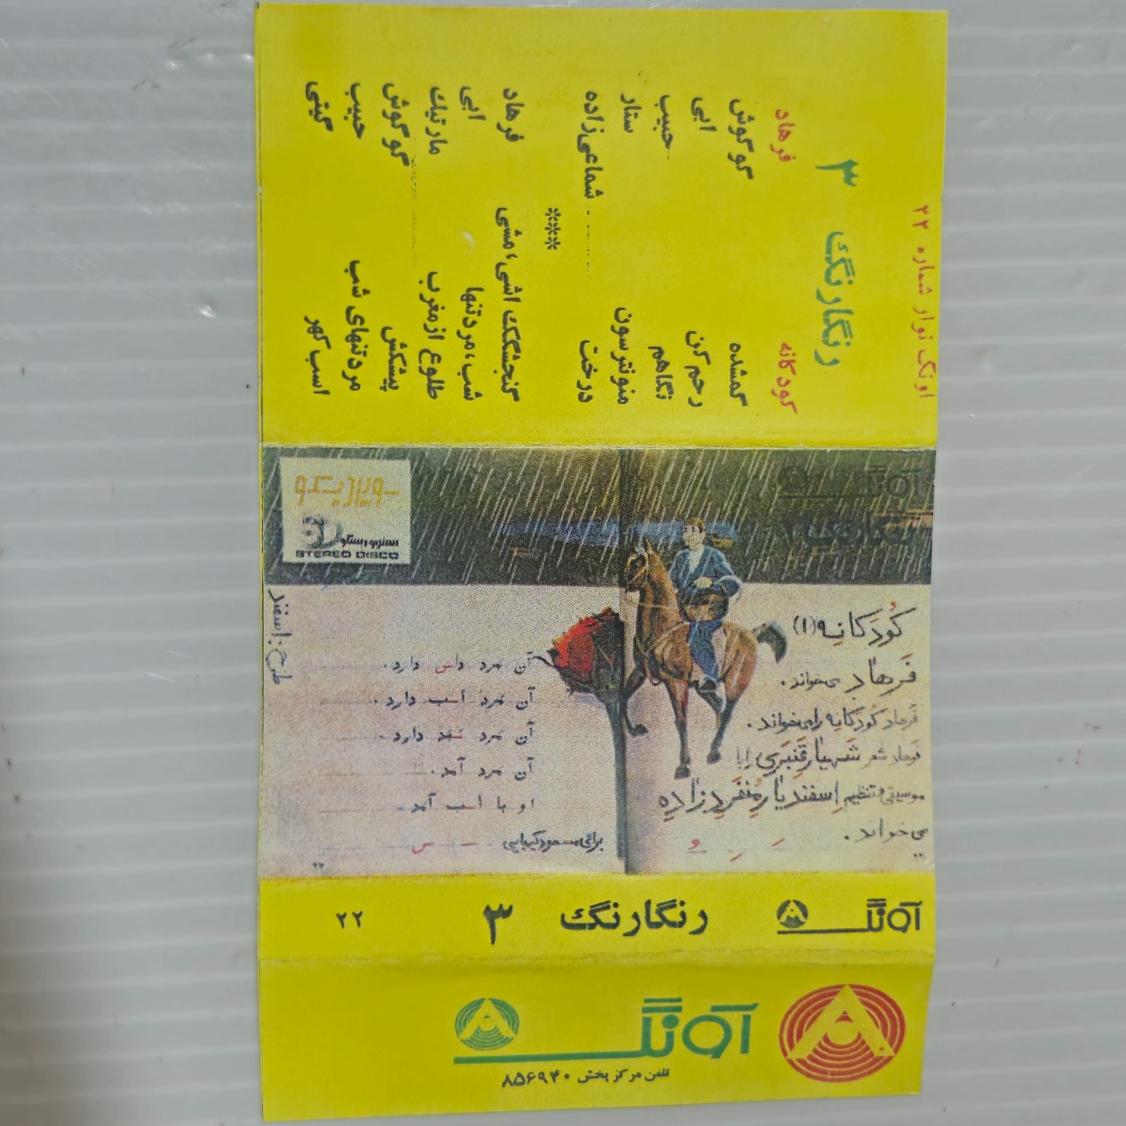 اونگ نوار شماره ۲۲
رنگارنگ ۳
فرهاد کودکانه
گوگوش گمشده
ابی رحم کن
حبیب نگاهم
ستار منو نترسون
شماعی زاده درخت
***
فرهاد گنجشگک اشی، مشی
ابی شب، مرد تنها
مارتیک طلوع از مغرب
گوگوش پیشکش
حبیب مرد تنهای شب
گیتی اسب کهر
آونگ
رنگارنگ
استریو دیسکو
STEREO DISCO
طرح: اسفند
کودکانه (۱)
فرهاد می‌خواند.
فرهاد کودکانه را می‌خواند.
فرهاد شعر شهیار قنبری را با
موسیقی و تنظیم اسفندیار منفردزاده
می‌خواند.
آن مرد داس دارد.
آن مرد اسب دارد.
آن مرد سبد دارد.
آن مرد آمد.
او با اسب آمد.
برای مسعود کیمیایی
آونگ رنگارنگ ۳ ۲۲
آونگ
تلفن مرکز پخش ۸۵۶۹۴۰